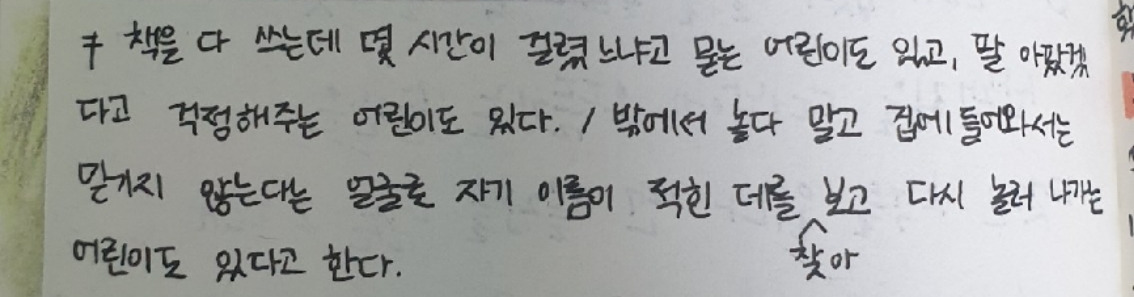 # 책을 다 쓰는데 몇 시간이 걸렸느냐고 묻는 어린이도 있고, 팔 아팠겠
다고 걱정해주는 어린이도 있다. / 밖에서 놀다 말고 집에 들어와서는
믿기지 않는다는 얼굴로 자기 이름이 적힌 데를 보고 다시 놀러 나가는
어린이도 있다고 한다. 찾아